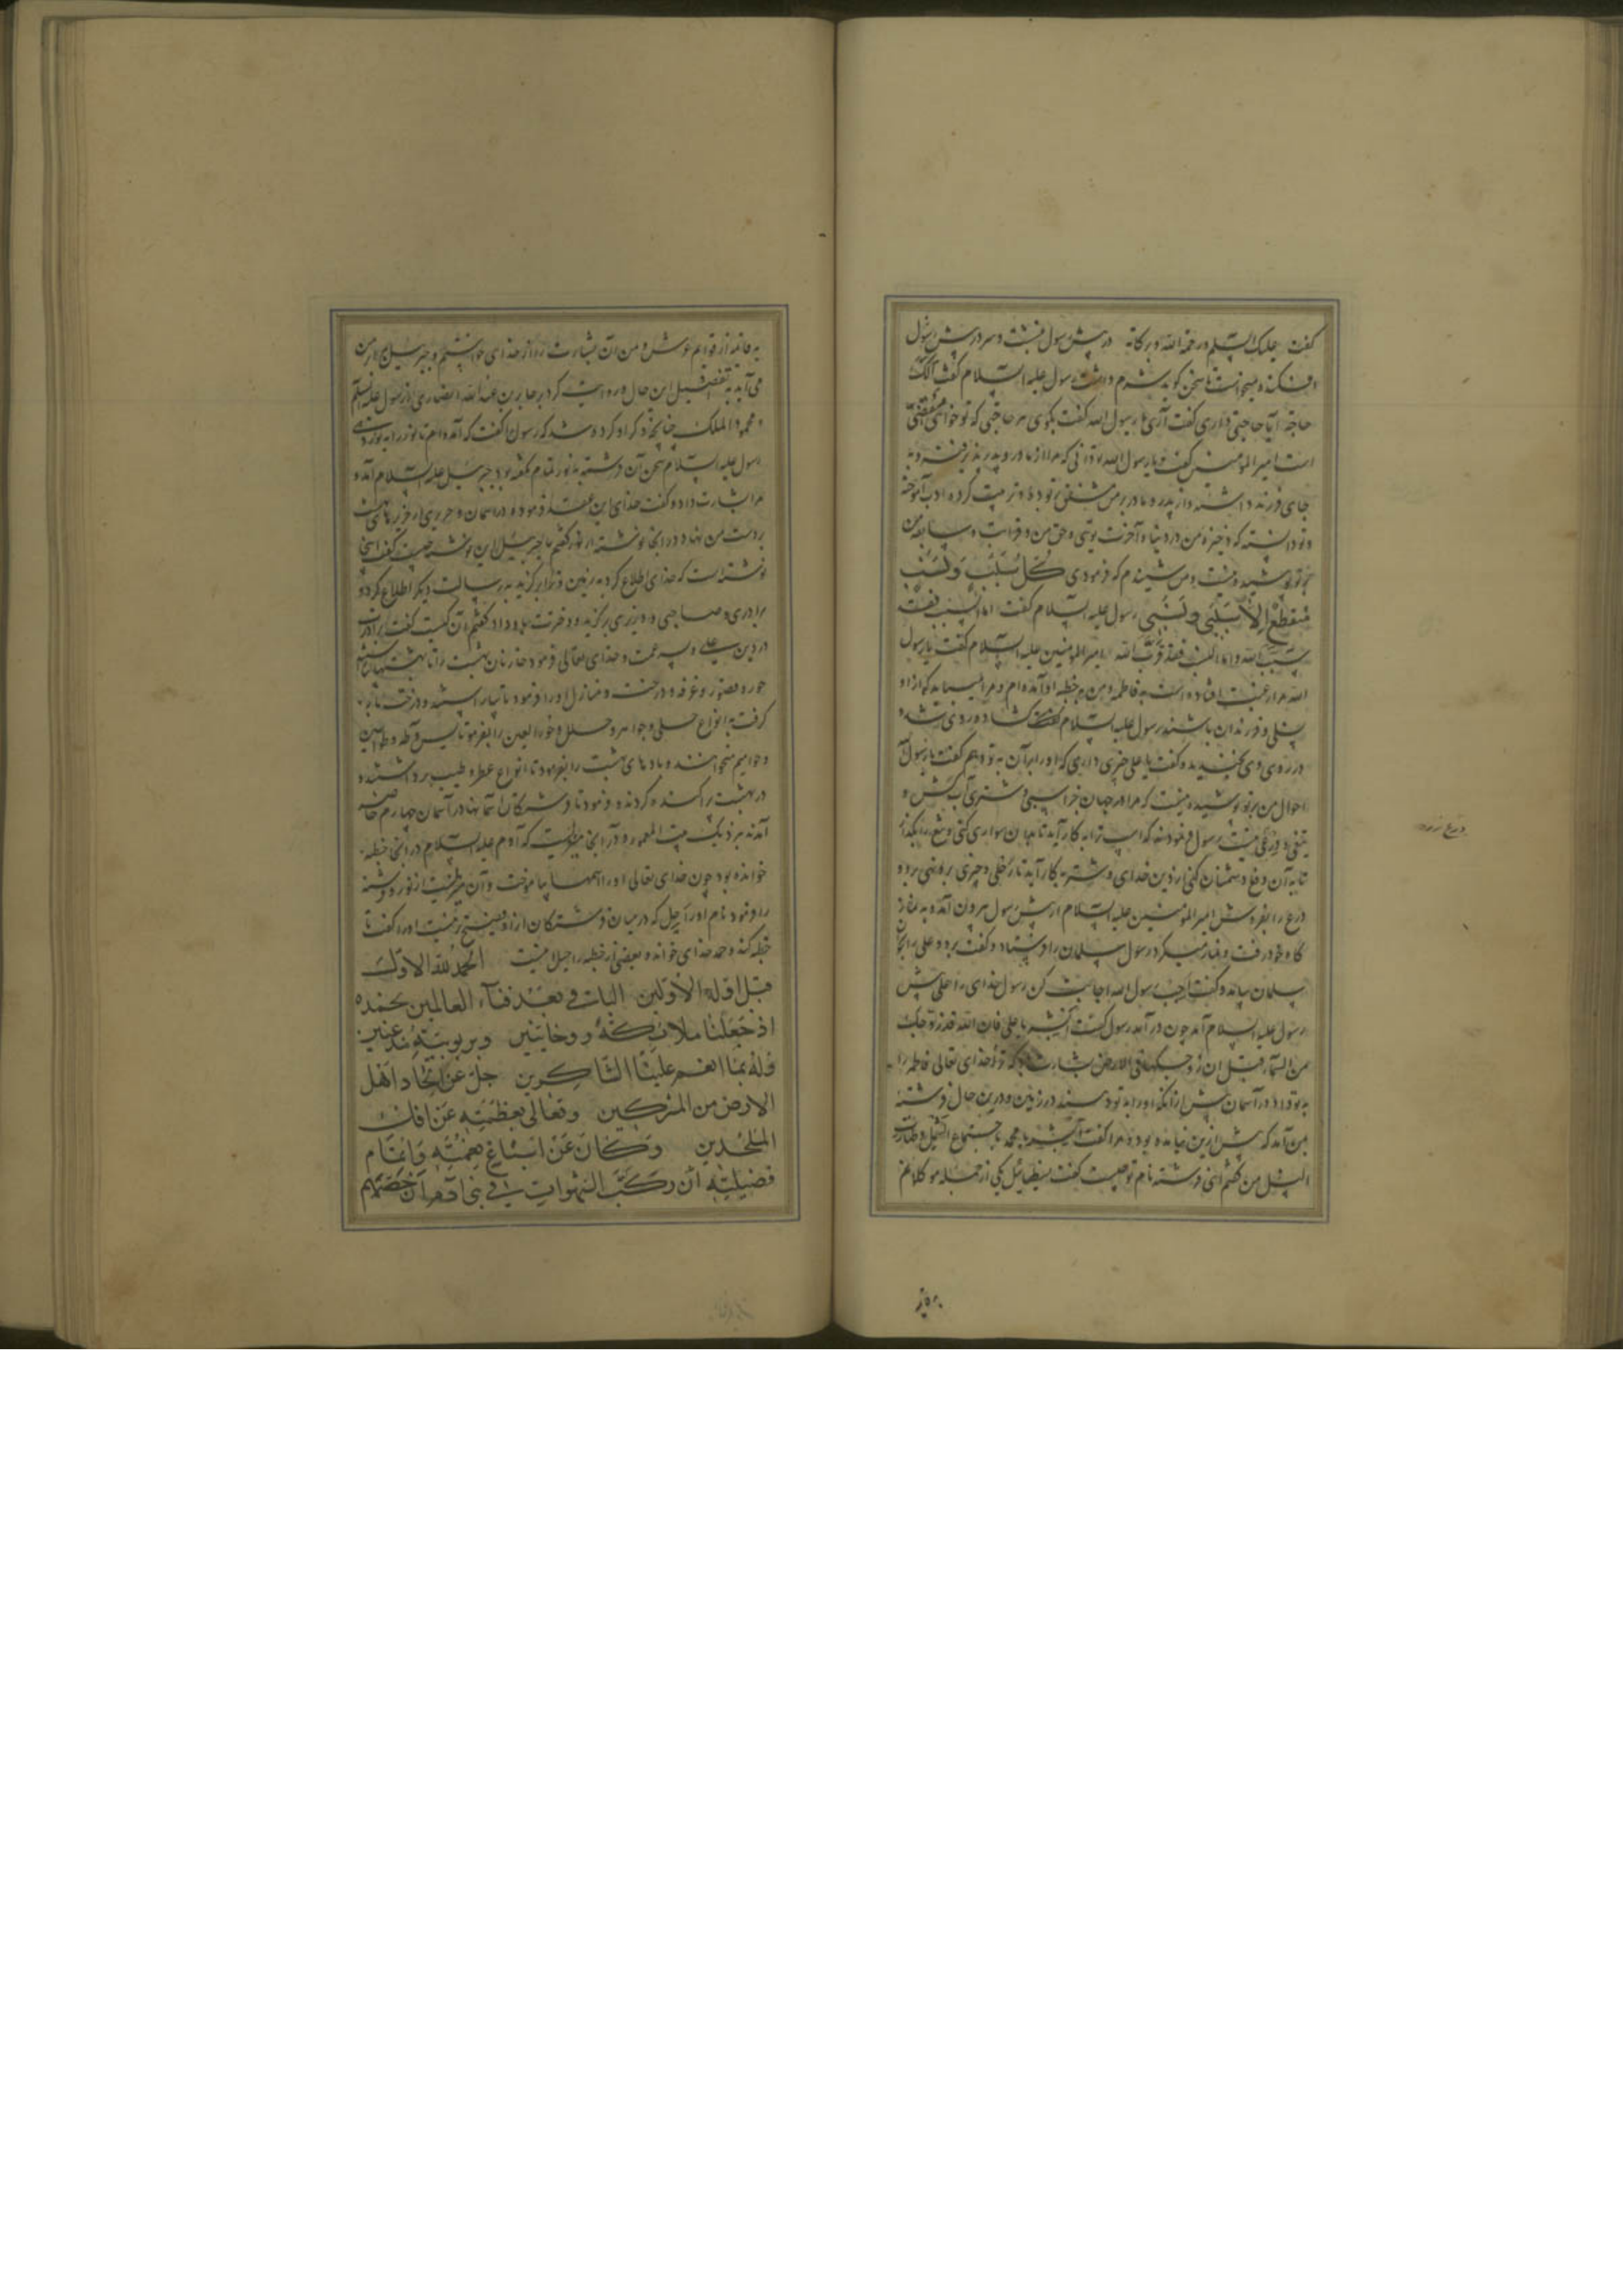 گفت علیک السلم ورحمة الله وبرکاته در پیش رسول بنشست و سر در پیش رسول
افکنده میخواست تا سخن گوید شرم داشت رسول علیه السلام گفت الک
حاجة آیا حاجتی داری گفت آری یا رسول الله گفت بگوی هر حاجتی که تو خواهی مقضی
است امیر المومنین گفت یا رسول الله تو دانی که مرا از مادر و پدر پذیرفته و به
جای فرزند داشته و از پدر و مادر بر من مشفق تر بوده و تربیت کرده و ادب آموخته
و تو دانسته که ذخیره من در دنیا و آخرت تویی و حق من و قرابت و سابقه من
بر تو پوشیده نیست و من شنیدم که فرمودی کل سبب ونسب
منقطع الا سببی ونسبی رسول علیه السلام گفت اما السبب فقد
سبب الله واما النسب فقد قرب الله امیر المومنین علیه السلام گفت یا رسول
الله مرا رغبت افتاده است به فاطمه و من به خطبه او آمده ام و مرا میباید که از او
نسلی و فرزندان باشند رسول علیه السلام گشاده روی شده
در روی وی بخندید و گفت یا علی چیزی داری که او را بر آن به تو دهم گفت یا رسول الله
احوال من بر تو پوشیده نیست که مرا در جهان جز اسبی و شتری آب کش و
تیغی و درعی نیست رسول فرمود نه که اسب ترا به کار آید تا بدان سواری کنی و تیغ را بگذار
تا به آن دفع دشمنان کنی از دین خدای و شتر به کار آید تا رحلی و چیزی برو نهی برو و
درع را بفروش امیر المومنین علیه السلام از پیش رسول بیرون آمد و به نماز
گاه خود رفت و نماز میکرد رسول سلمان را فرستاد و گفت برو و علی را بخوان
سلمان بیامد و گفت اجب رسول الله اجابت کن رسول خدای را علی پیش
رسول علیه السلام آمد چون در آمد رسول گفت ابشر یا علی فان الله قد زوجک
من السماء قبل ان زوجتکها فی الارض بشارت باد که ترا خدای تعالی فاطمه را
به تو داد در آسمان پیش از آنکه او را به تو دهند در زمین و درین حال فرشته
بمن آمد که پیش ازین نیامده بود و مرا گفت ابشر یا محمد باجتماع الشمل و طهارة
النسل من گفتم ای فرشته نام تو چیست گفت سیطائیل یکی از جمله موکلانم
به قائمه
درع زره
به قائمه از قوایم عرش و من آن بشارت را از خدای خواستم و جبرئیل بر اثر من
می آید به تفصیل این حال و روایت کرد جابر بن عبد الله انصاری از رسول علیه السلم
و محمود الملک چنانچه ذکر او کرده شد که رسول را گفت که آمده ام تا نور را به نور دهی
رسول علیه السلام سخن آن فرشته هنوز تمام نگفته بود جبرئیل علیه السلام آمد و
مرا بشارت داد و گفت خدای این عقد فرموده در آسمان و حریری از حریرهای بهشت
بر دست من نهاد و در آنجا نوشته از نور گفتم یا جبرئیل این نوشته چیست گفت اینجا
نوشته است که خدای اطلاع کرد به زمین و ترا برگزید به رسالت و دیگر اطلاع کرد و
برادری و صاحبی و وزیری برگزید و دخترت بدو داد گفتم آن کیست گفت برادرت
در دین و پسر عمت علی و خدای تعالی فرمود خازنان بهشت را تا بهشتها
حور و قصور و غرفه و درخت و منازل او را فرمود تا بیاراستند و درخت
گرفت به انواع حلی و جواهر و حلل و حور العین را بفرمود تا یس و طه و طواسین
و حوامیم میخواندند و بادهای بهشت را بفرمود تا انواع عطر و طیب برداشتند و
در بهشت پراکنده کردند و فرمود تا فرشتگان آسمانها در آسمان چهارم حاضر
آمدند نزدیک بیت المعمور و در آنجا منبریست که آدم علیه السلام در آنجا خطبه
خوانده بود چون خدای تعالی او را اسمها بیاموخت و آن منبریست از نور و فرشته
را فرمود نام او راحیل که در میان فرشتگان از او فصیح تر نیست او را گفت تا
خطبه کند و حمد خدای خوانده بعضی از خطبه راحیل اینست الحمد لله الاول
قبل اولیة الاولین الباقی بعد فناء العالمین نحمده
اذ جعلنا ملائکة روحانیین وبربوبیته مذعنین
وله بما انعم علینا الشاکرین جل عن اتحاد اهل
الارض من المشرکین وتعالی بعظمته عن افک
الملحدین وکان عن اسباغ نعمته واتمام
فضیلته ان رکب الشهوات فی بنی آدم